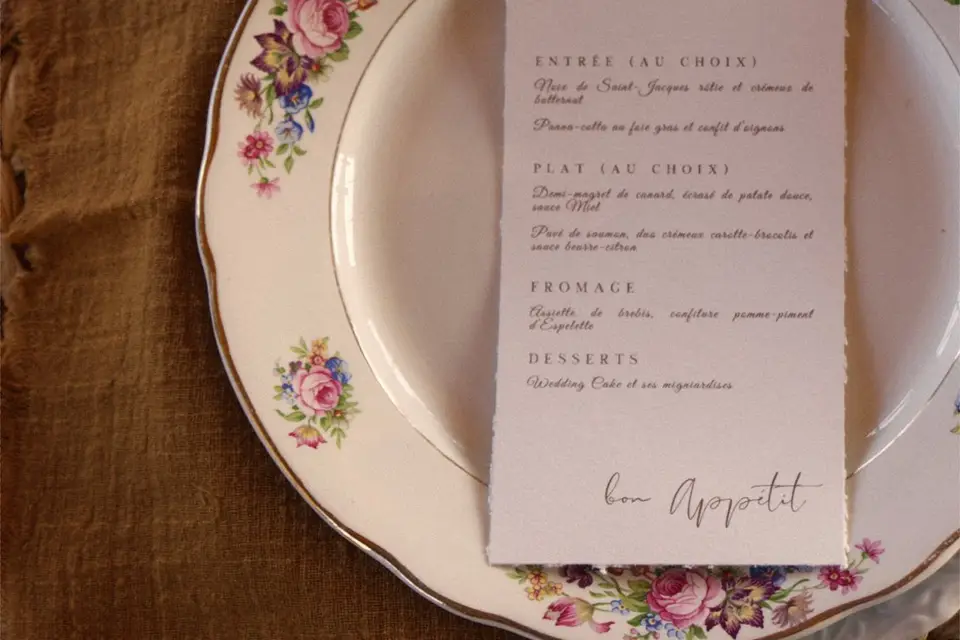 ENTRÉE (AU CHOIX)
Noix de Saint-Jacques rôtie et crémeux de
butternut
Panna-cotta au foie gras et confit d'oignons
PLAT (AU CHOIX)
Demi-magret de canard, écrasé de patate douce,
sauce Miel
Pavé de saumon, duo crémeux carotte-brocolis et
sauce beurre-citron
FROMAGE
Assiette de brebis, confiture pomme-piment
d'Espelette
DESSERTS
Wedding Cake et ses migniardises
bon Appétit